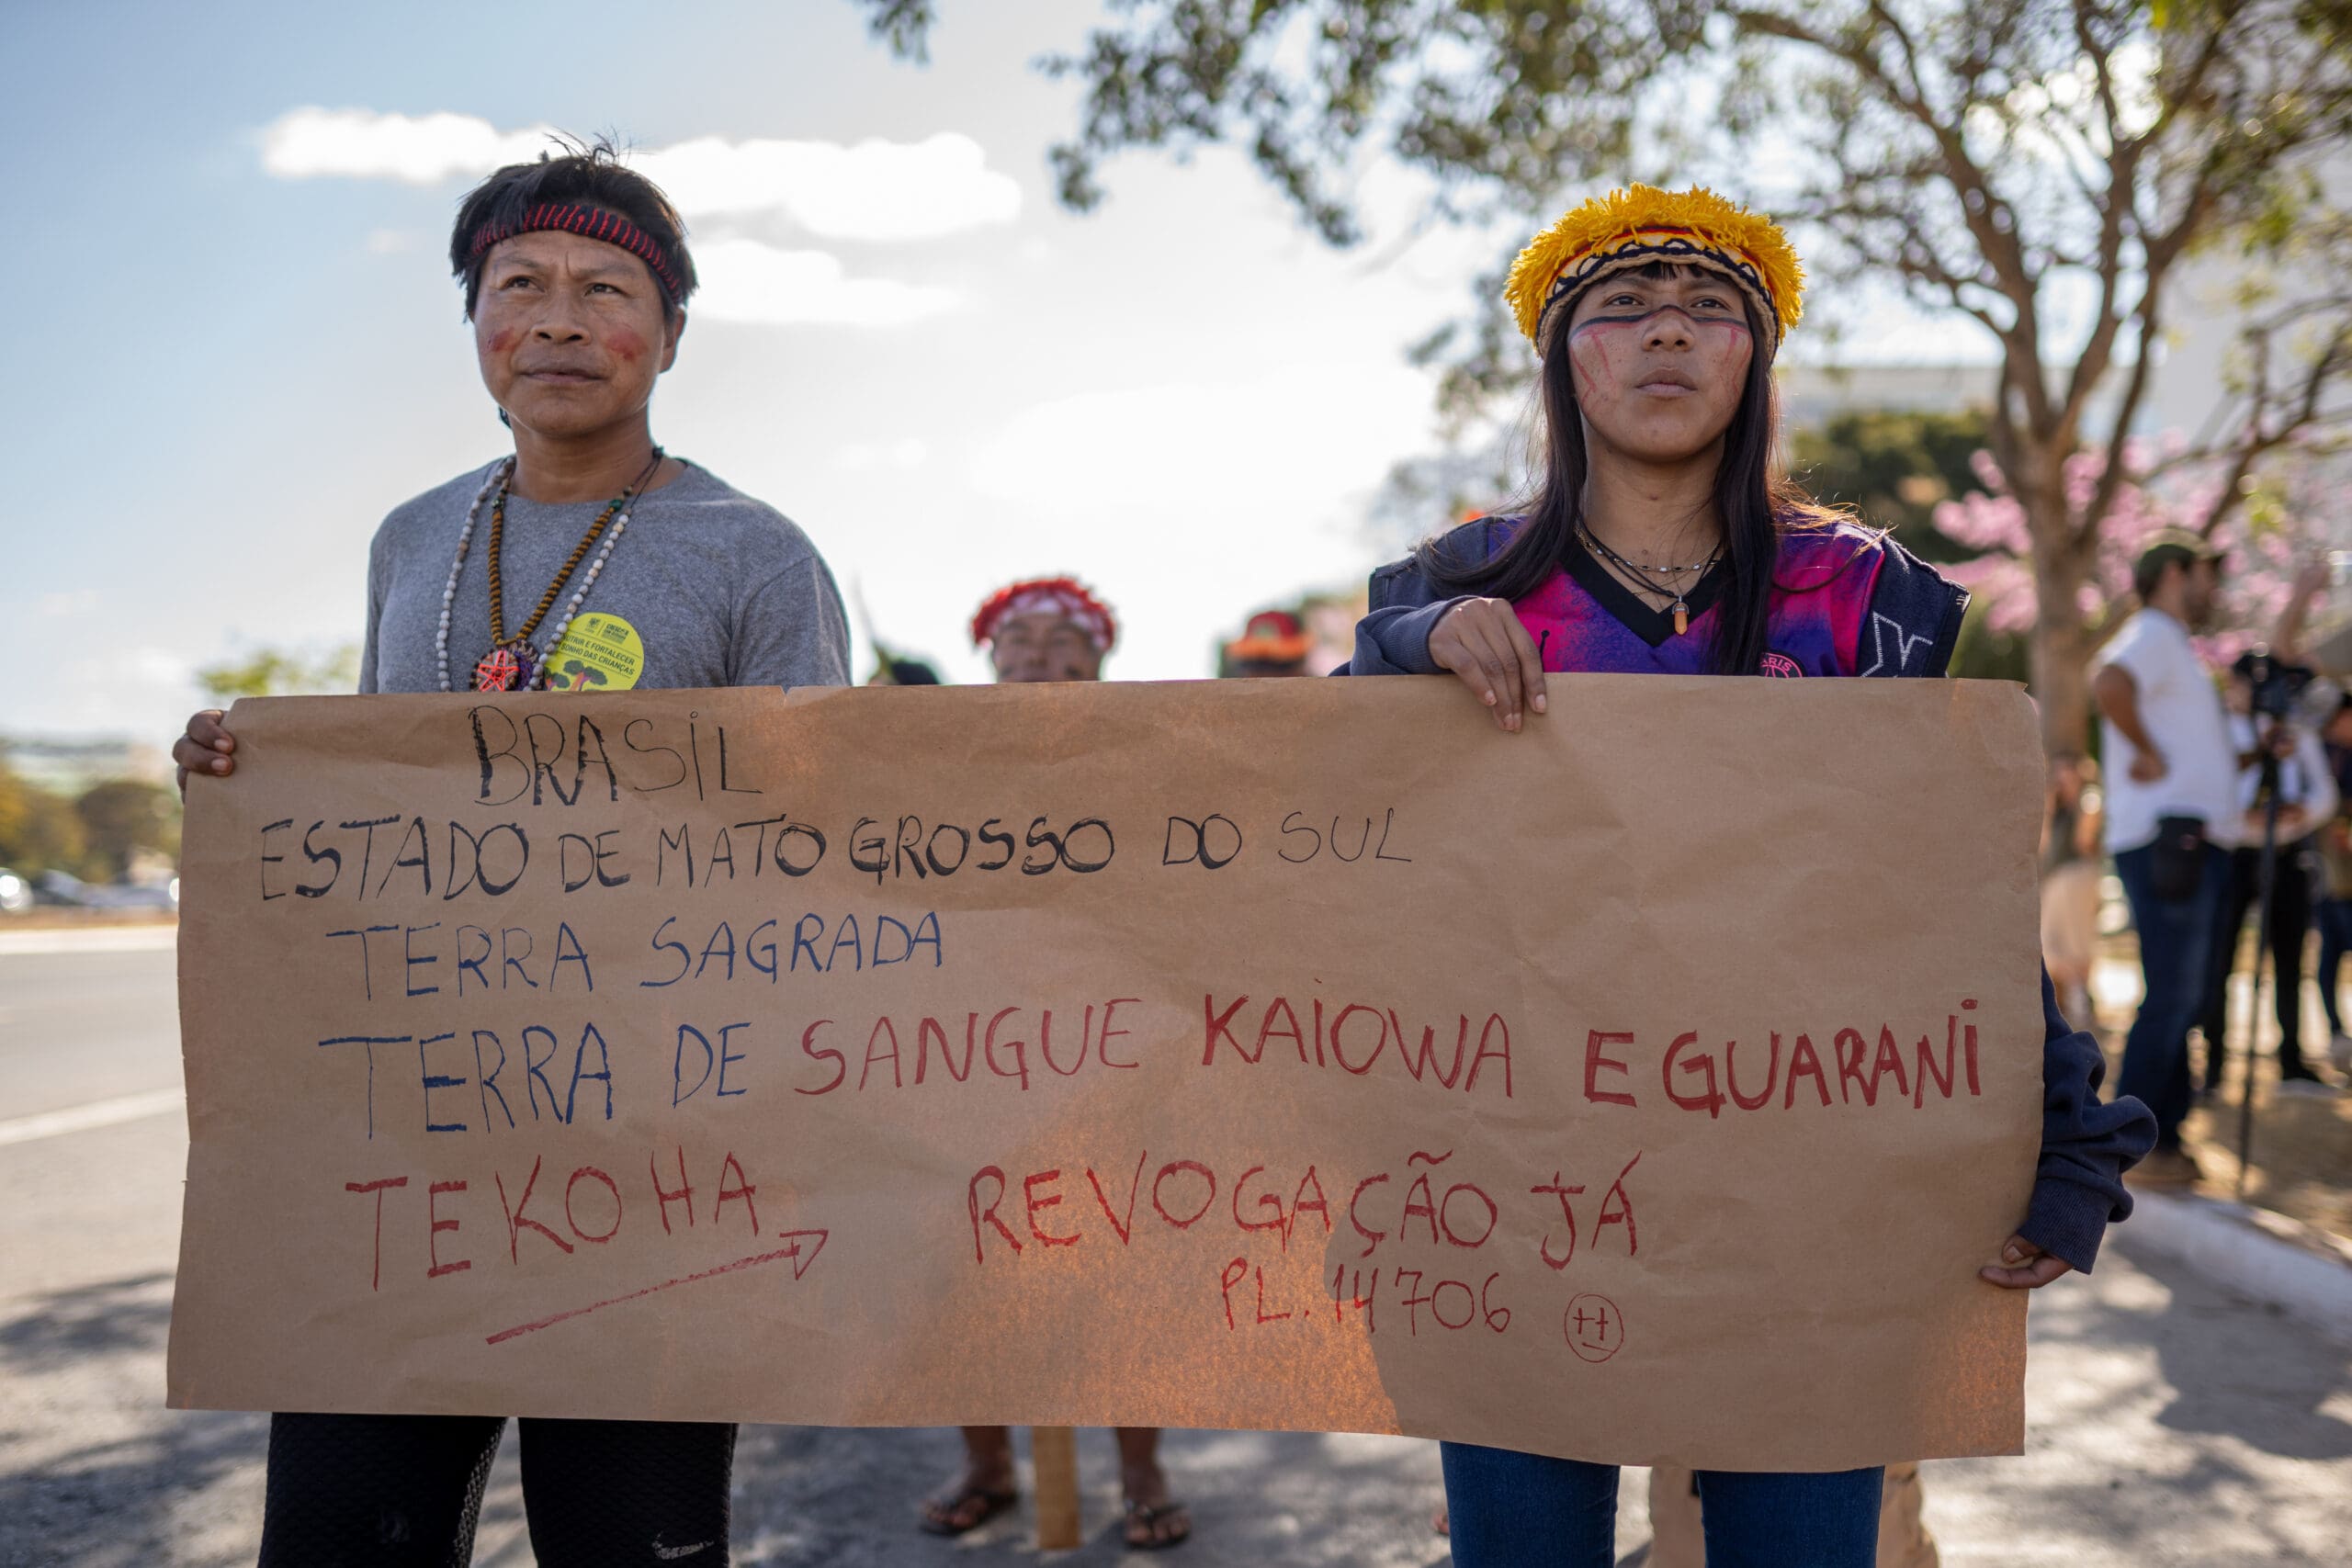 BRASIL
ESTADO DE MATO GROSSO DO SUL
TERRA SAGRADA
TERRA DE SANGUE KAIOWA E GUARANI
TEKOHA REVOGAÇÃO JÁ
PL. 14706
E FORTALECER
SONHO DAS CRIANÇAS